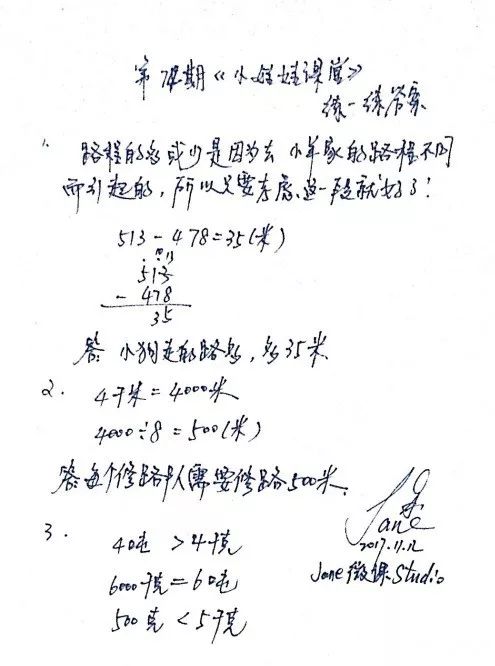 第74期《小娃娃课堂》
练一练答案
1、路程的多或少是因为去小羊家的路程不同
而引起的，所以只要考虑这一段就好了！
513-478=35(米)
513
- 478
35
答：小狗走的路多，多35米.
2. 4千米=4000米
4000÷8=500(米)
答：每个修路队需要修路500米.
3. 40吨 >4千克
6000千克=6吨
500克<5千克
Jane
2017.11.12
Jane微课Studio